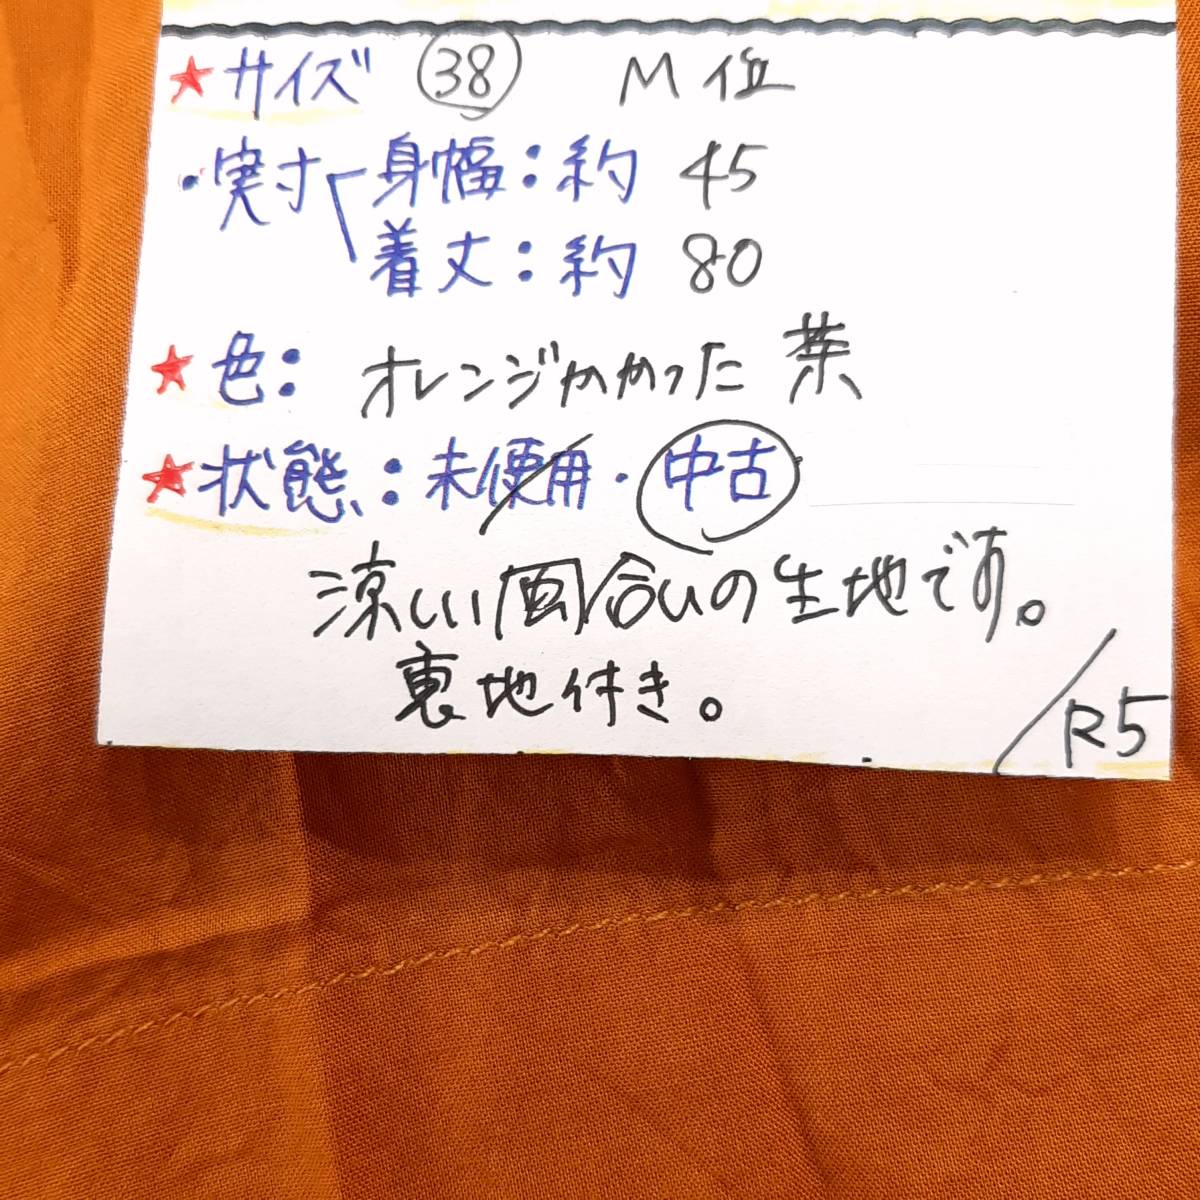 ★サイズ 38 M位
・実寸 身幅:約 45
着丈:約 80
★色: オレンジかかった茶
★状態:未使用・中古
涼しい風合いの生地です。
裏地付き。
R5